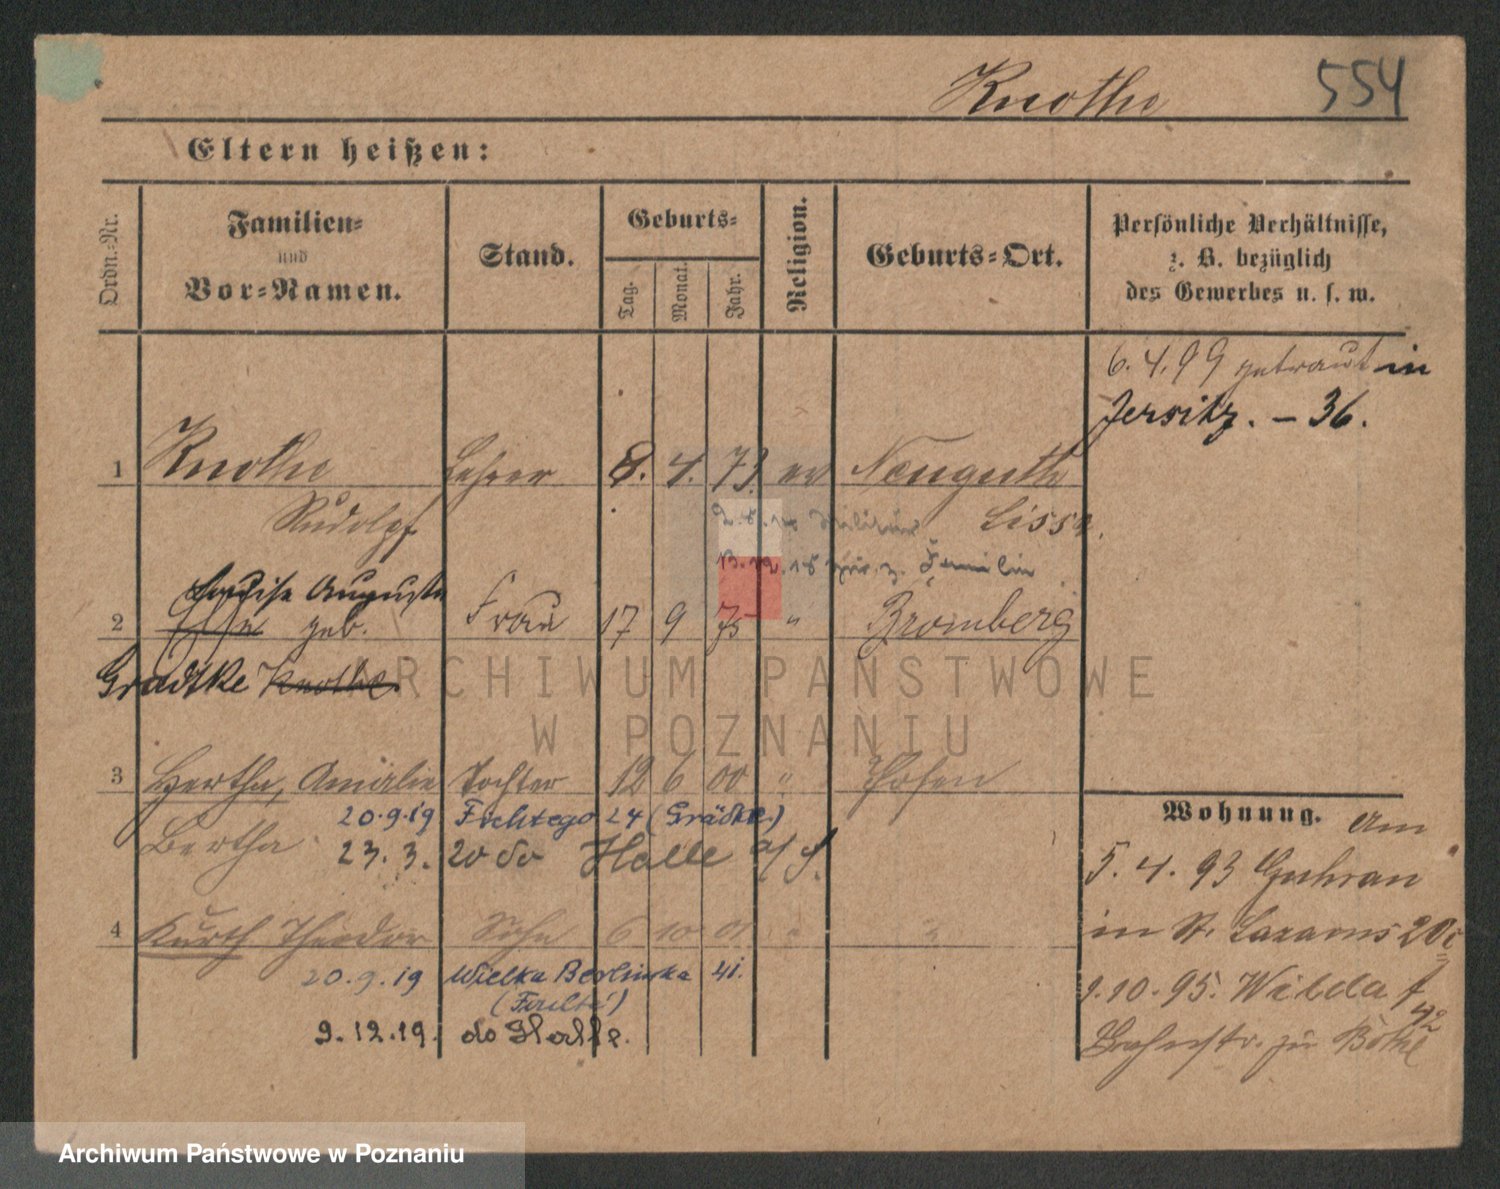 Knothe
554
Eltern heißen:
Ordn.-Nr.
Familien-
und
Vor-Namen.
Stand.
Geburts-
Tag.
Monat.
Jahr.
Religion.
Geburts-Ort.
Persönliche Verhältnisse,
z. B. bezüglich
des Gewerbes u. s. w.
6.4.99 getraut in
Jersitz. – 36.
1 Knothe Lehrer 8. 4. 73. ev Neuguth
Rudolf Lissa.
Militär
13.12.18 zur. z. Familie
Luise Auguste
2 geb. Frau 17 9 75 " Bromberg
Gradtke Knothe
ARCHIWUM PAŃSTWOWE
W POZNANIU
3 Hertha, Amalie Tochter 12 6 00 " Posen
20.9.19 Fichtego 24 (Grädtke.)
Bertha 23.3. 20 do Halle a/S.
4 Kurth Theodor Sohn 6 10 01 " "
20.9.19 Wielka Berlinska 41.
9.12.19. do Halle.
Wohnung. Am
5.4.93 Guhrau
in St. Lazarus 20c
1.10.95. Wilda
42
Bahnstr. zu
Archiwum Państwowe w Poznaniu